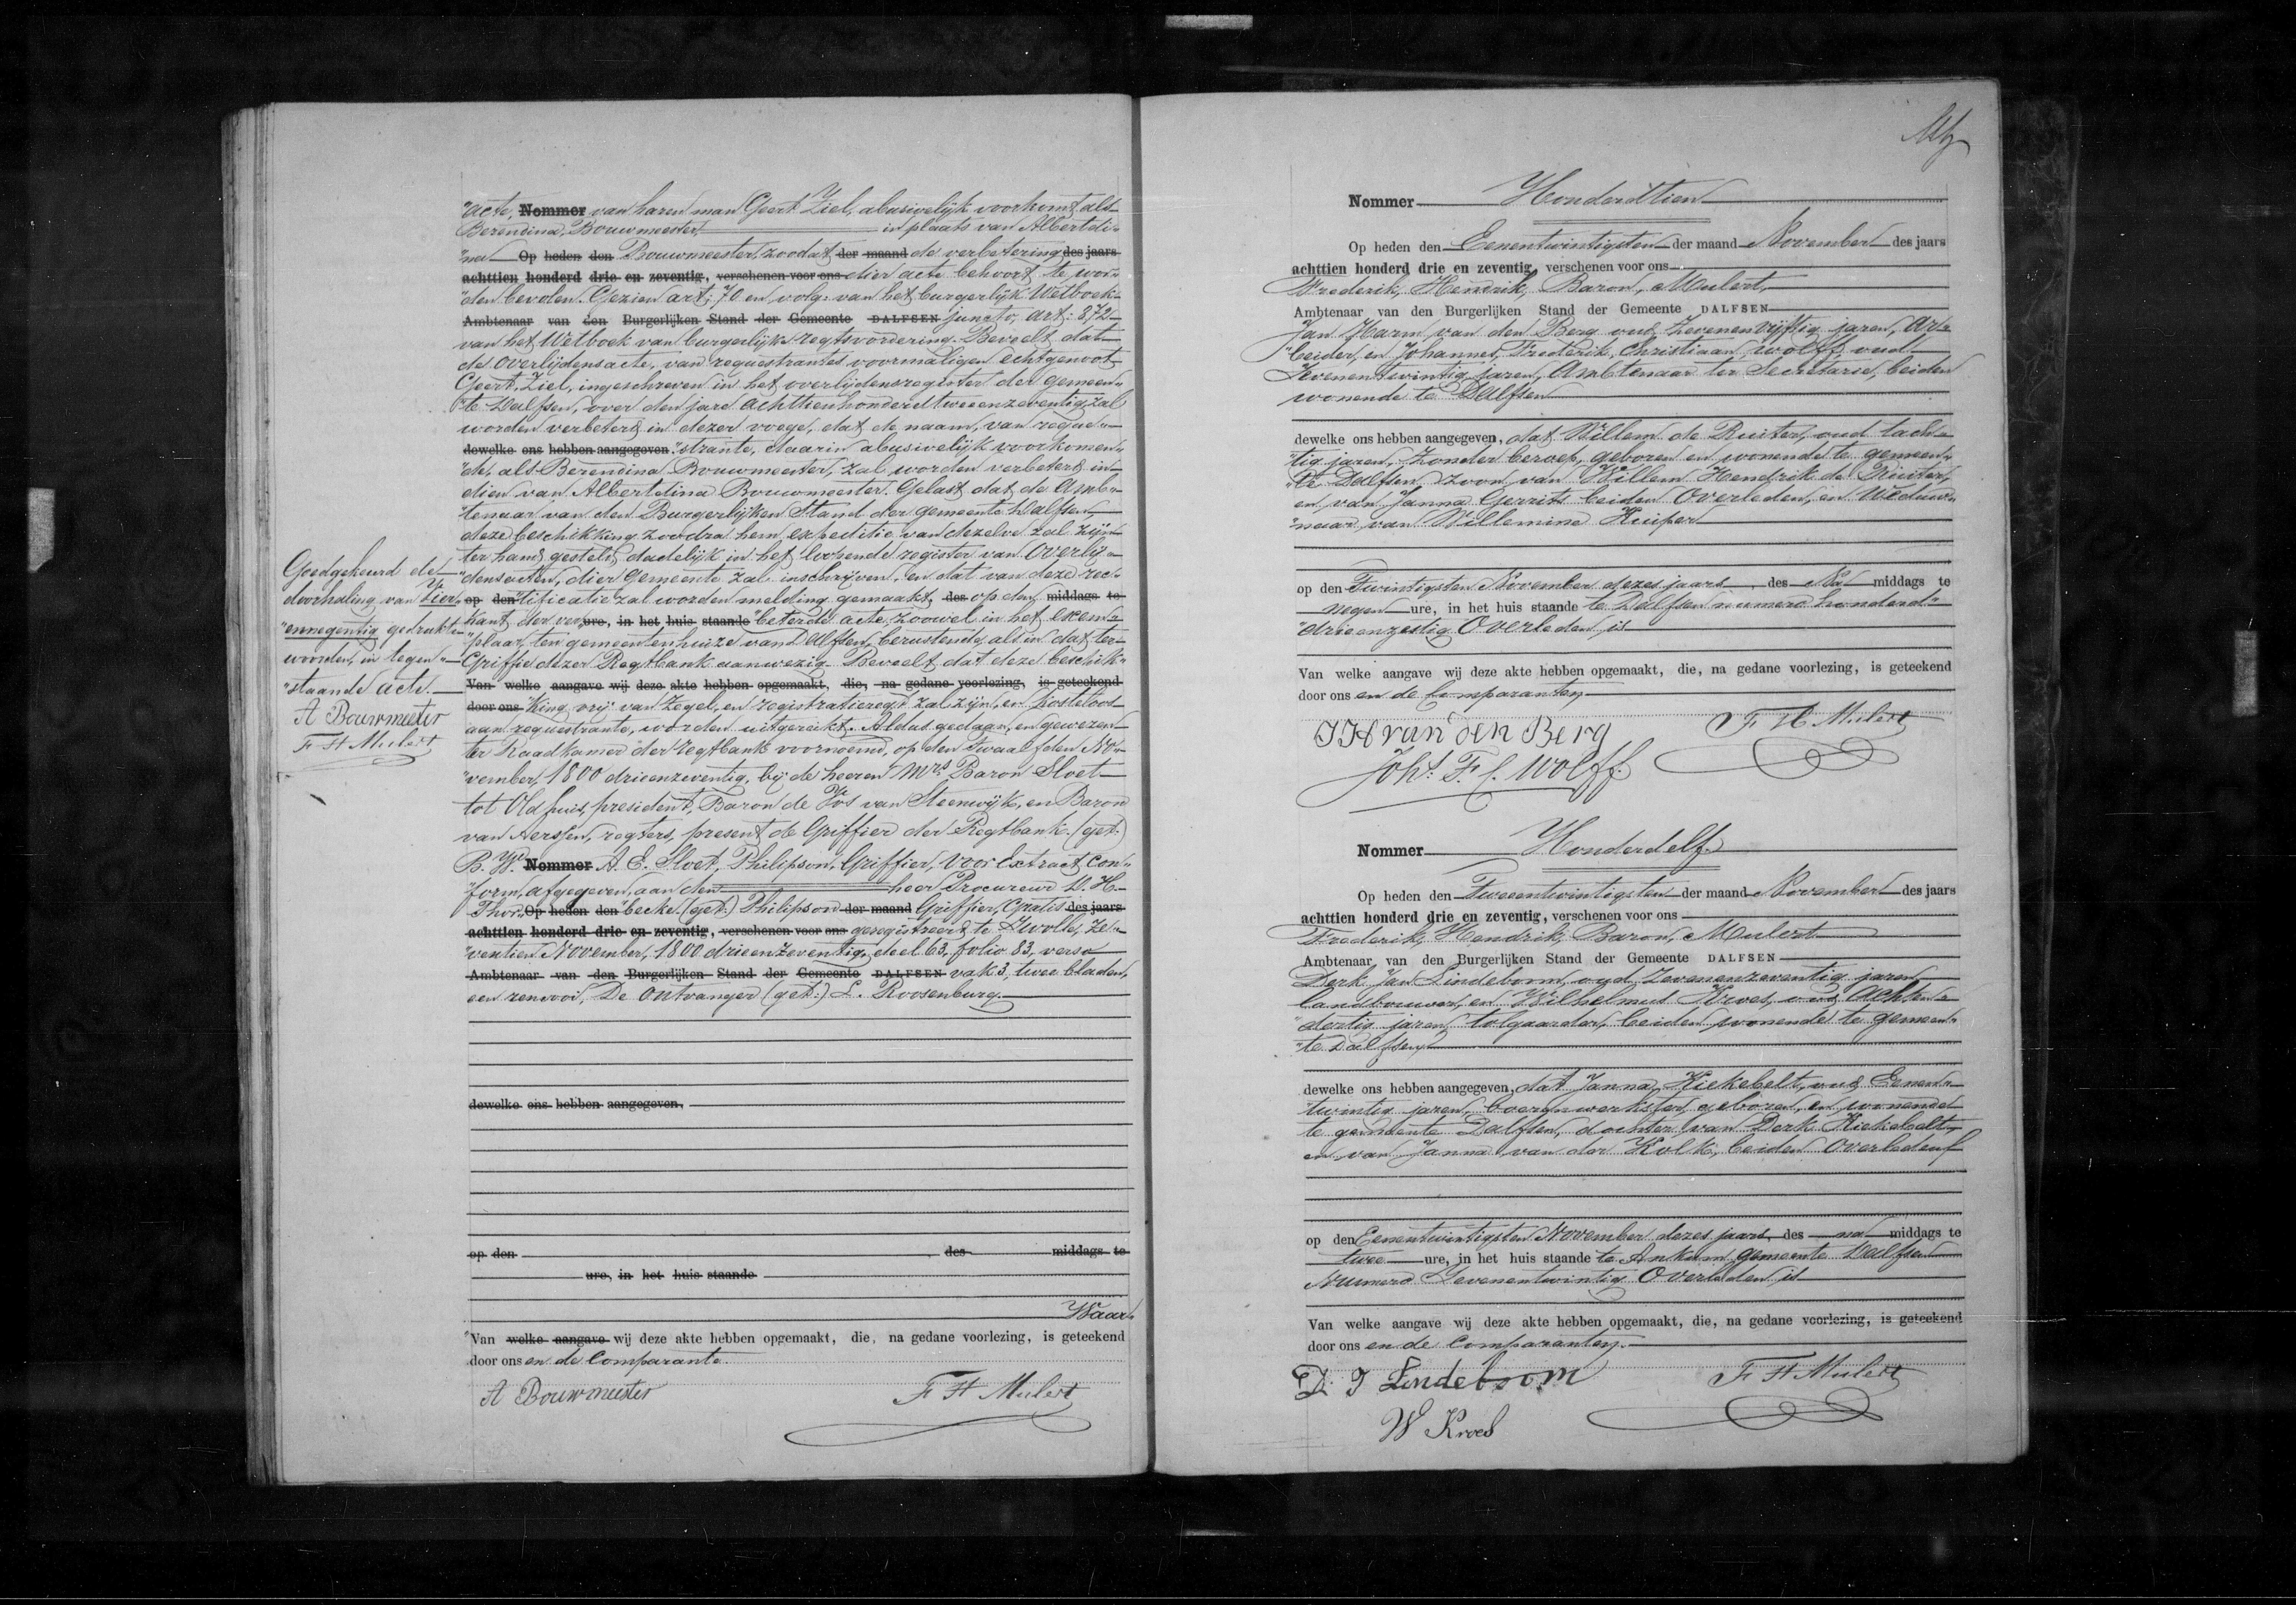 "acte, Nommer van haren man Geert Ziel, abusivelijk voorkomt als
Berendina Bouwmeester, in plaats van Albertdi"
"na Op heden den Bouwmeester, zoodat der maand de verbetering des jaars
achttien honderd drie en zeventig, verschenen voor ons dier acte behoort te wor"
"den bevolen. Gezien art: 70 en volg. van het burgerlijk Wetboek
Ambtenaar van den Burgerlijken Stand der Gemeente DALFSEN juncto, art: 872
van het Wetboek van burgerlijke regtsvordering. Beveelt dat
de overlijdensacte, van requestrantes voormaligen echtgenoot
Geert Ziel, ingeschreven in het overlijdensregister der gemeen"
"te Dalfsen, over den jare achttienhonderdtweeenzeventig zal
worden verbeterd in dezer voege, dat de naam, van reque"
dewelke ons hebben aangegeven "strante, daarin abusivelijk voorkomen"
"de, als Berendina Bouwmeester, zal worden verbeterd in
dien van Albertdina Bouwmeester. Gelast dat de Amb"
"tenaar van den Burgerlijken Stand der gemeente Dalfsen
deze beschikking zoodra hem expeditie van dezelve zal zijn
ter hand gesteld, dadelijk in het loopende register van Overlij"
"densacten, dier Gemeente zal inschrijven, en dat van deze rec"
op den "tificatie zal worden melding gemaakt, des op den middags te
kant der ver" ure, in het huis staande "beterde acte, zoowel in het exem"
"plaar, ten gemeentenhuize van Dalfsen, berustende, als in dat ter
Griffie dezer Regtbank aanwezig. Beveelt dat deze beschik"
Van welke aangave wij deze akte hebben opgemaakt, die, na gedane voorlezing, is geteekend
door ons "king vrij van zegel, en registratieregt zal zijn, en kosteloos
aan requestrante, worden uitgereikt. Aldus gedaan, en gewezen
ter Raadkamer der regtbank voornoemd, op den twaalfden No"
"vember, 1800 drieenzeventig, bij de heeren Mrs Baron Sloet
tot Oldhuis, president, Baron de Vos van Steenwijk, en Baron
van Aerssen, regters, present de Griffier der Regtbank. (get:)
B. W. Nommer A. E. Sloet, Philipson, Griffier, voor Extract con"
"form, afgegeven, aan den heer Procureur D. H.
Thor" Op heden den "becke (get:) Philipson der maand Griffier, Gratis des jaars
achttien honderd drie en zeventig, verschenen voor ons geregistreerd te Zwolle, Ze"
"ventien November, 1800 drieenzeventig, deel 63, folio 83, verso
Ambtenaar van den Burgerlijken Stand der Gemeente DALFSEN vak 3, twee bladen,
een renvooi, De Ontvanger (get:) L. Roosenburg.
dewelke ons hebben aangegeven,
op den des middags te
ure, in het huis staande
Waar"
"Van welke aangave wij deze akte hebben opgemaakt, die, na gedane voorlezing, is geteekend
door ons en de Comparante.
A Bouwmeester F H Mulert
Goedgekeurd de
doorhaling van vier"
"ennegentig gedrukte
woorden, in tegen"
"staande acte.
A Bouwmeester
F H Mulert
Nommer Honderdtien
Op heden den Eenentwintigsten der maand November des jaars
achttien honderd drie en zeventig, verschenen voor ons
Frederik, Hendrik, Baron, Mulert,
Ambtenaar van den Burgerlijken Stand der Gemeente DALFSEN
Jan Harm van den Berg oud Zevenenvijftig jaren, Ar"
"beider, en Johannes, Frederik, Christiaan Wolff oud
Zevenentwintig jaren, Ambtenaar ter Secretarie, beiden
wonende te Dalfsen
dewelke ons hebben aangegeven, dat Willem de Ruiter, oud tach"
"tig jaren, zonder beroep, geboren en wonende te gemeen"
"te Dalfsen, zoon van Willem Hendrik de Ruiter,
en van Janna Gerrits beiden Overleden, en Weduw"
"naar van Willemina Kuiper
op den Twintigsten November dezes jaars des Na middags te
negen ure, in het huis staande te Dalfsen numero honderd"
"drieenzestig Overleden is
Van welke aangave wij deze akte hebben opgemaakt, die, na gedane voorlezing, is geteekend
door ons en de Comparanten
J H van den Berg F H Mulert
Johs. F. C. Wolff.
Nommer Honderdelf.
Op heden den Tweeentwintigsten der maand November des jaars
achttien honderd drie en zeventig, verschenen voor ons
Frederik, Hendrik, Baron, Mulert
Ambtenaar van den Burgerlijken Stand der Gemeente DALFSEN
Derk Jan Lindeboom, oud Zevenenzeventig jaren,
landbouwer, en Wilhelmus Kroes, oud Achten"
"dertig jaren, tolgaarder, beiden wonende te gemeen"
"te Dalfsen
dewelke ons hebben aangegeven, dat Janna, Kiekebelt, oud Eenen"
"twintig jaren, boerenwerkster, geboren, en wonende
te gemeente Dalfsen, dochter van Derk Kiekebelt,
en van Janna van der Kolk, beiden Overleden
op den Eenentwintigsten November dezes jaars, des na middags te
twee ure, in het huis staande te Ankum, gemeente Dalfsen
Numero Zevenentwintig Overleden is
Van welke aangave wij deze akte hebben opgemaakt, die, na gedane voorlezing, is geteekend
door ons en de Comparanten.
D. J Lindeboom F H Mulert
W Kroes